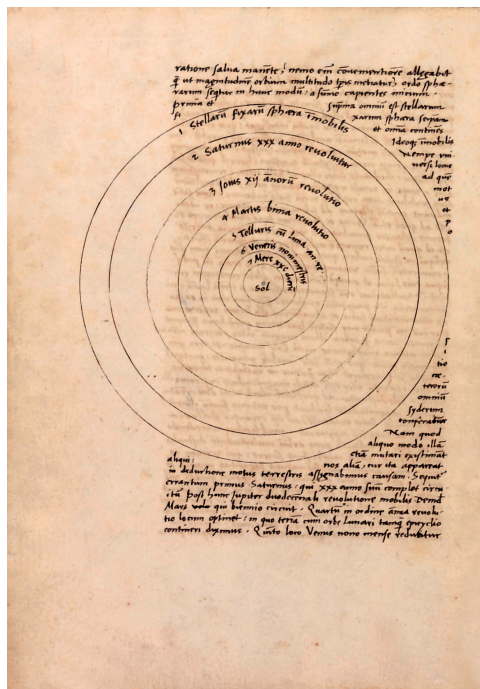 ratione salua manente, nemo em̄ cōuenientiorē allegabit
q̃ ut magnitudinē orbium multitudo tp̄is metiatur, ordo sphæ-
rarum seqtur in hunc modū: a sum̄o capientes initium.
prima et suprema omniū est stellarum
fi xarum sphæra seipam
et omnia continēs
Ideoq; im̄obilis
Nempe uni-
uersi locus
ad quē
mot
us
et
p
o
1 Stellarū fixarū sphæra imobilis
2 Saturnus xxx anno reuoluitur
3 Iouis xij annorū reuolutio
4 Martis bima reuolutio
5 Telluris cū luna an. re.
6 Veneris nonimestris
7 Merc xxc dierū
Sol
s
i
tio
cæ-
terorū
omniū
syderum
conferatur
Nam quod
aliquo modo illā
etiā mutari existimāt
aliqui: nos aliā, cur ita appareat
in deductione motus terrestris assignabimus causam. Sequit̄
errantium primus Saturnus: qui xxx anno suū complet circu
itū Post hunc Iupiter duodecennali reuolutione mobilis Deinde
Mars qui biennio circuit. Quartū in ordine annua reuolu-
tio locum optinet: in quo terrā cum orbe Lunari tanq̃ epicyclio
contineri diximus. Quinto loco Venus nono mense reducitur